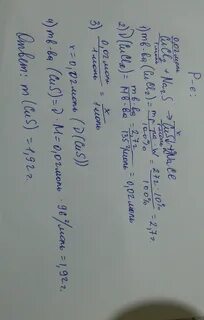 Р-е:
0,02моль x
CuCl₂ + Na₂S → CuS↓ + 2NaCl
1моль 1моль
1) mв-ва (CuCl₂) = mр-ра · W / 100% = 27г · 10% / 100% = 2,7г
2) ϑ(CuCl₂) = mв-ва / Mв-ва = 2,7г / 135г/моль = 0,02моль
3) 0,02моль / 1моль = x / 1моль
x = 0,02моль (ϑ(CuS))
4) mв-ва (CuS) = ϑ · M = 0,02моль · 96г/моль = 1,92г.
Ответ: m(CuS) = 1,92г.